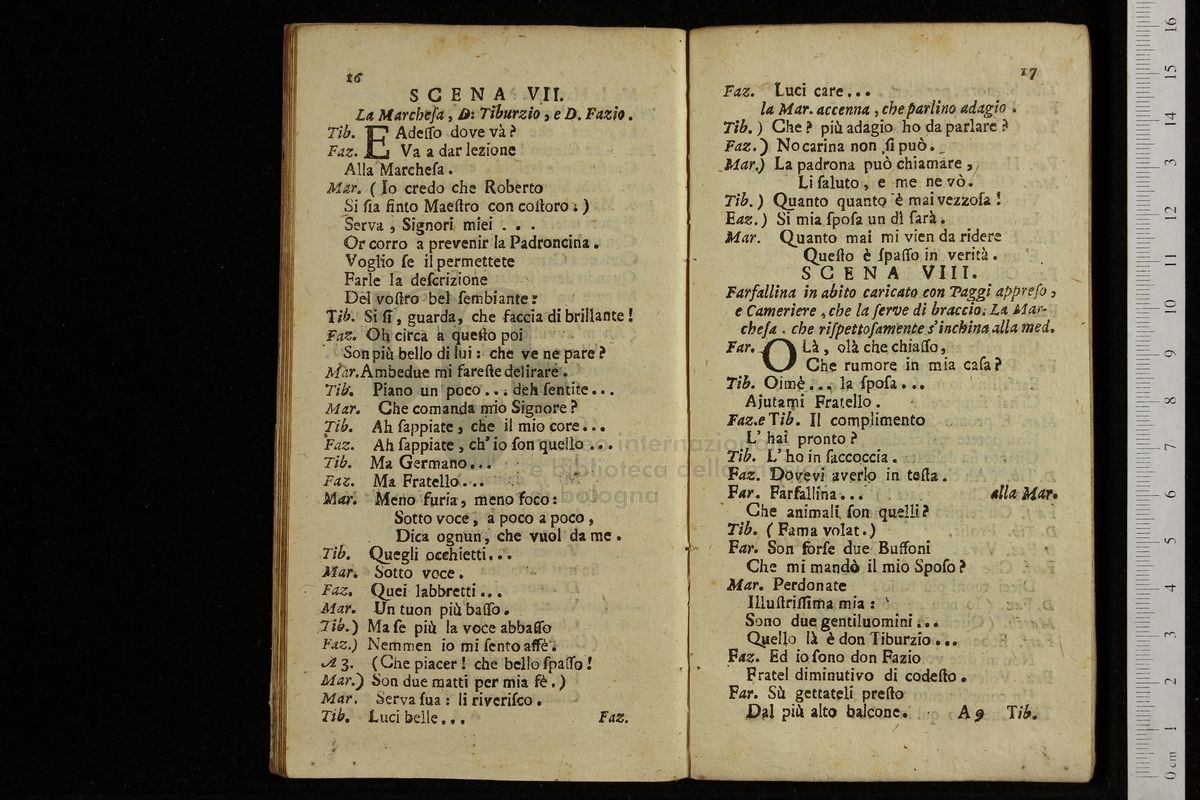 16
SCENA VII.
La Marcheſa, D: Tiburzio, e D. Fazio.
Tib. E Adeſſo dove và?
Faz. Va a dar lezione
Alla Marcheſa.
Mar. (Io credo che Roberto
Si ſia finto Maeſtro con coſtoro.)
Serva, Signori miei . . .
Or corro a prevenir la Padroncina.
Voglio ſe il permettete
Farle la deſcrizione
Del voſtro bel ſembiante:
Tib. Si ſi, guarda, che faccia di brillante!
Faz. Oh circa a queſto poi
Son più bello di lui: che ve ne pare?
Mar. Ambedue mi fareſte delirare.
Tib. Piano un poco... deh ſentite...
Mar. Che comanda mio Signore?
Tib. Ah ſappiate, che il mio core...
Faz. Ah ſappiate, ch'io ſon quello...
Tib. Ma Germano...
Faz. Ma Fratello...
Mar. Meno furia, meno foco:
Sotto voce, a poco a poco,
Dica ognun, che vuol da me.
Tib. Quegli occhietti...
Mar. Sotto voce.
Faz. Quei labbretti...
Mar. Un tuon più baſſo.
Tib.) Ma ſe più la voce abbaſſo
Faz.) Nemmen io mi ſento affè.
A 3. (Che piacer! che bello ſpaſſo!
Mar.) Son due matti per mia fè.)
Mar. Serva ſua: li riveriſco.
Tib. Luci belle... Faz.
17
Faz. Luci care...
la Mar. accenna, che parlino adagio.
Tib.) Che? più adagio ho da parlare?
Faz.) No carina non ſi può.
Mar.) La padrona può chiamare,
Li ſaluto, e me ne vò.
Tib.) Quanto quanto è mai vezzoſa!
Eaz.) Si mia ſpoſa un dì ſarà.
Mar. Quanto mai mi vien da ridere
Queſto è ſpaſſo in verità.
SCENA VIII.
Farfallina in abito caricato con Paggi appreſo,
e Cameriere, che la ſerve di braccio. La Mar-
cheſa. che riſpettoſamente s'inchina alla med.
Far. OLà, olà che chiaſſo,
Che rumore in mia caſa?
Tib. Oimè... la ſpoſa...
Ajutami Fratello.
Faz. e Tib. Il complimento
L'hai pronto?
Tib. L'ho in ſaccoccia.
Faz. Dovevi averlo in teſta.
Far. Farfallina... alla Mar.
Che animali ſon quelli?
Tib. (Fama volat.)
Far. Son forſe due Buffoni
Che mi mandò il mio Spoſo?
Mar. Perdonate
Illuſtriſſima mia:
Sono due gentiluomini...
Quello là è don Tiburzio...
Faz. Ed io ſono don Fazio
Fratel diminutivo di codeſto.
Far. Sù gettateli preſto
Dal più alto balcone. A 9 Tib.